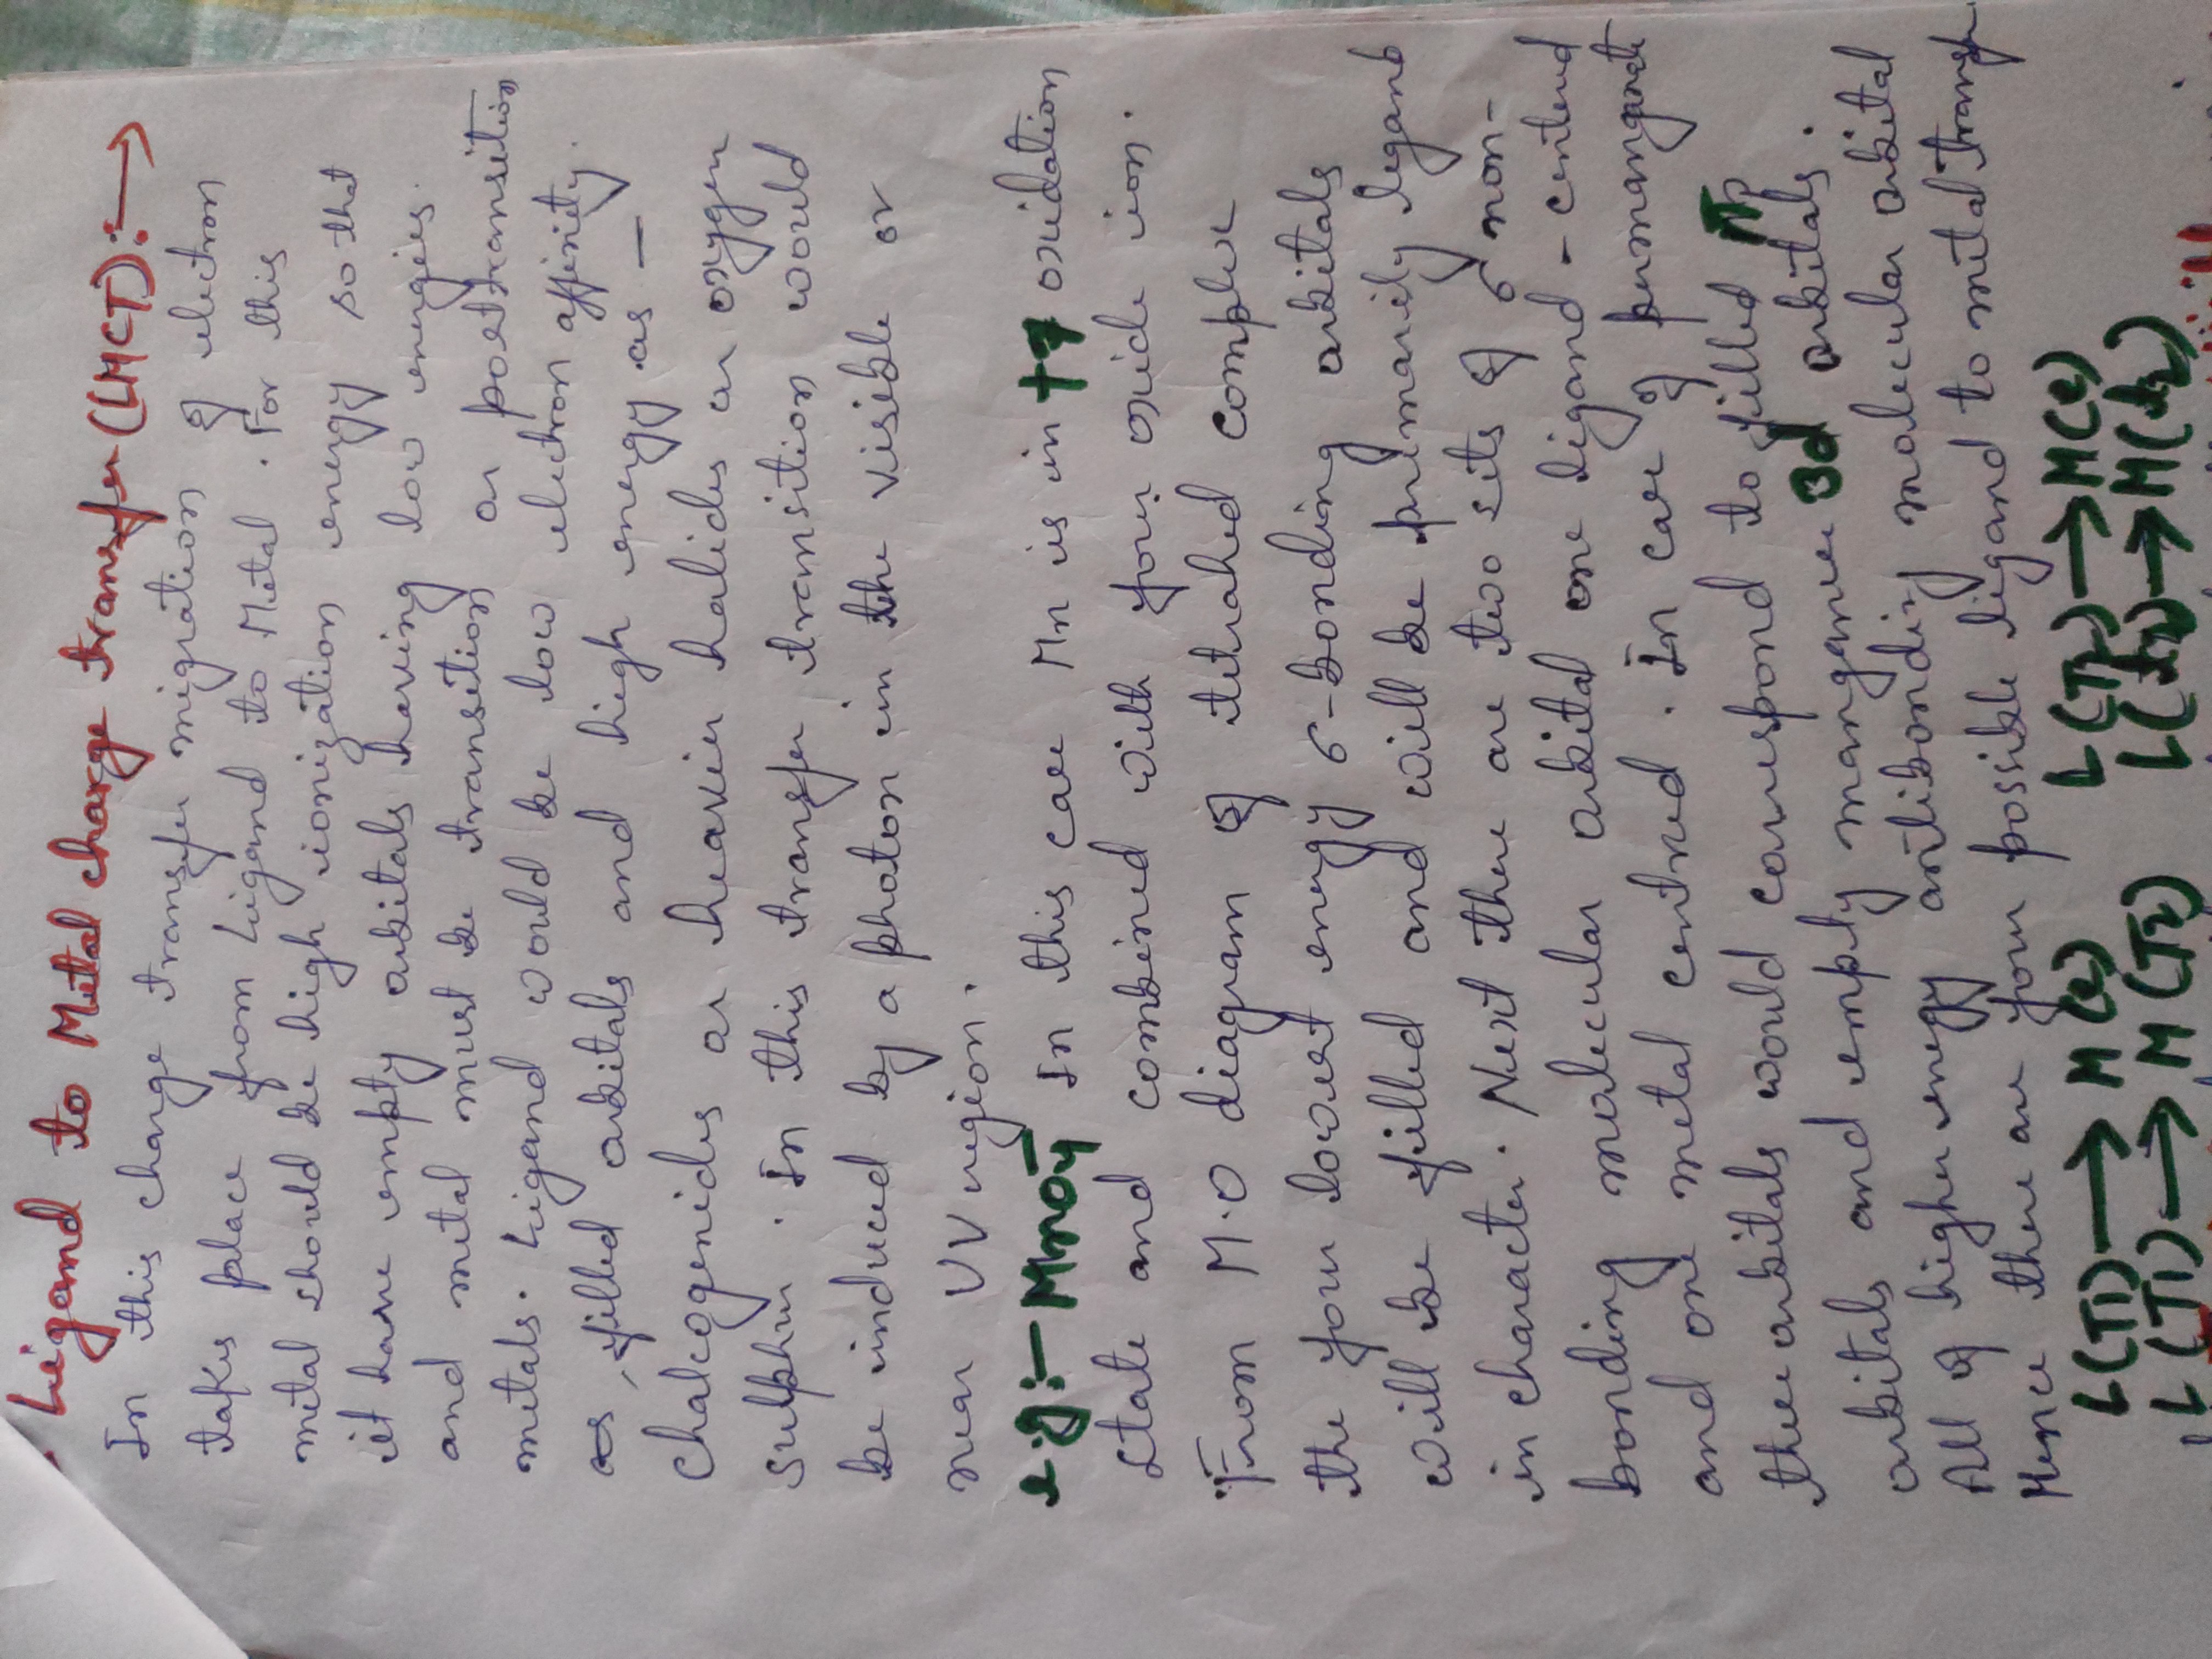 Ligand to Metal charge transfer (LMCT):→
In this charge transfer migration of electron
takes place from Ligand to Metal. For this
metal should be high ionization energy so that
it have empty orbitals having low energies.
and metal must be transition or post transition
metals. Ligand would be low electron affinity.
as, filled orbitals and high energy as —
chalcogenides or heavier halides or oxygen
sulphur. In this transfer transition would
be induced by a photon in the visible or
near UV region.
e.g:- MnO4⁻ In this case Mn is in +7 oxidation
state and combined with four oxide ion.
From M.O diagram of tetrahed complex
the four lowest energy σ-bonding orbitals
will be filled and will be primarily legand
in character. Next there are two sets of non-
bonding molecular orbital one ligand-centerd
and one metal centred. In case of permanganate
thee orbitals would correspond to filled
orbitals and empty manganese 3d orbitals.
All of higher energy antibonding molecular orbital
Hence there are four possible ligand to metal transfer
L(T1) → M(e) L(T2) → M(e)
L(T1) → M(T2) → M